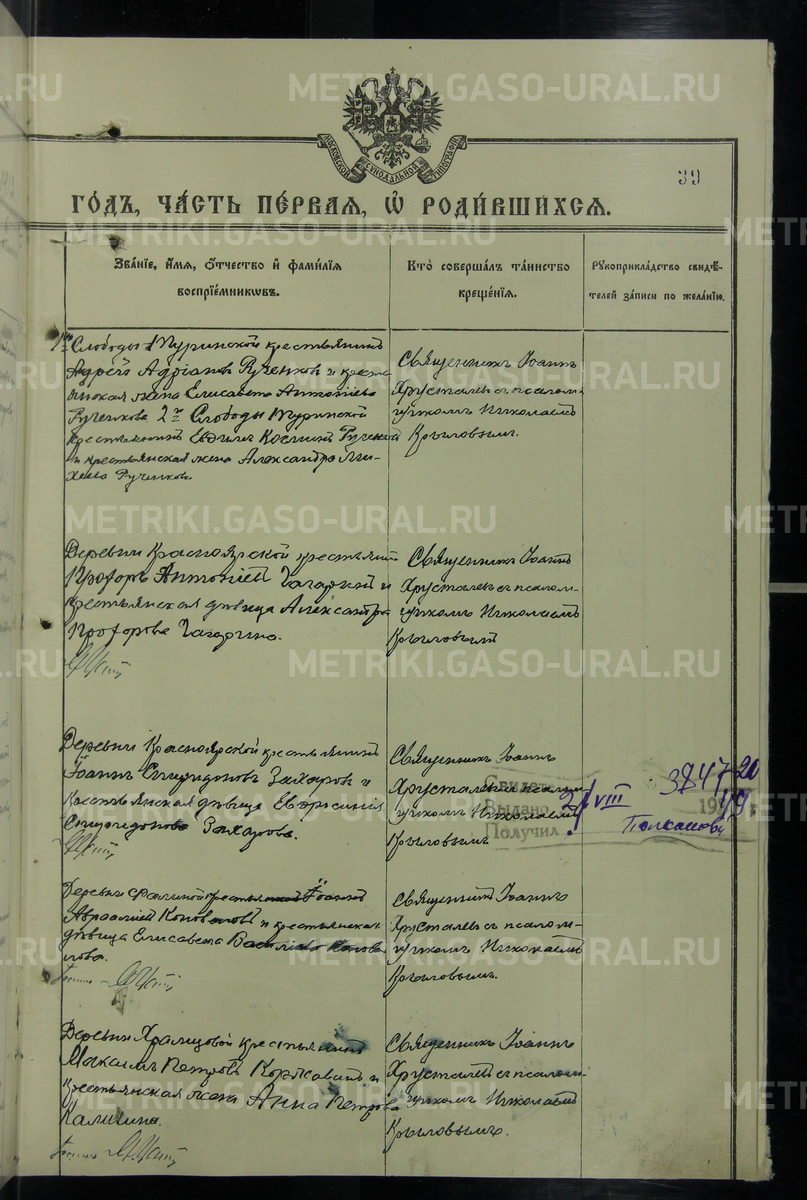 METRIKI.GASO-URAL.RU
МОСКОВСКОЙ СѴНОДАЛЬНОЙ ТИПОГРАФІИ
39
ГОДЪ, ЧАСТЬ ПЕРВАЯ, Ѿ РОДИВШИХСЯ.
Званіе, имя, отчество и фамилія
воспріемниковъ.
Кто совершалъ таинство
крещенія.
Рукоприкладство свидѣ-
телей записи по желанію.
Слободы Туринской крестьянинъ
Адріановъ Рученковъ и кресть
янская жена Елисавета Антоніева
Рученкова 2й Слободы Туринской
крестьянинъ Космин
и крестьянская жена Александра Ми-
хеева Рученкова
Священникъ Іоаннъ
Хрусталевъ съ псалом-
щикомъ Николаемъ
Крыловымъ.
Деревни Красноярской крестьянинъ
Прохоръ Антоніевъ и
крестьянская дѣвица Александра
Прохорова
Священникъ Іоаннъ
Хрусталевъ съ псалом-
щикомъ Николаемъ
Крыловымъ
Деревни Красноярской крестьянинъ
Іоаннъ Спиридоновъ Захаровъ и
крестьянская дѣвица Евфросинія
Спиридонова Захарова.
Священникъ Іоаннъ
Хрусталевъ съ псалом
щикомъ Николаемъ
Крыловымъ
Выдано VIII 19 49
Получил
Деревни крестьянинъ Іоаннъ
Коноваловъ и крестьянская
дѣвица Елисавета Василіева Конова
лова.
Священникъ Іоаннъ
Хрусталевъ съ псалом-
щикомъ Николаемъ
Крыловымъ.
Деревни Храмцовой крестьянинъ
Максимъ Петровъ и
крестьянская жена Анна Петрова
Калинина.
Священникъ Іоаннъ
Хрусталевъ съ псалом-
щикомъ Николаемъ
Крыловымъ.